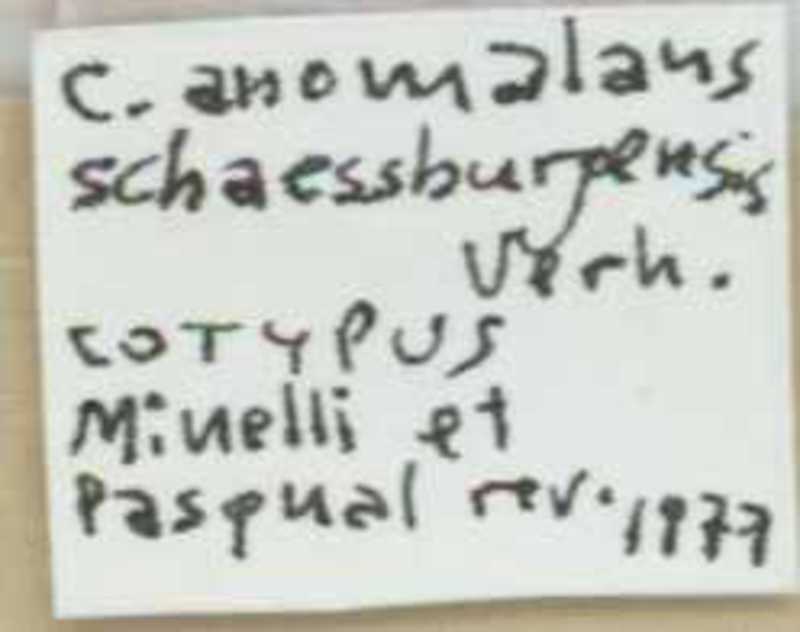 C. anomalans
schaessburgensis
Verh.
COTYPUS
Minelli et
Pasqual rev. 1977